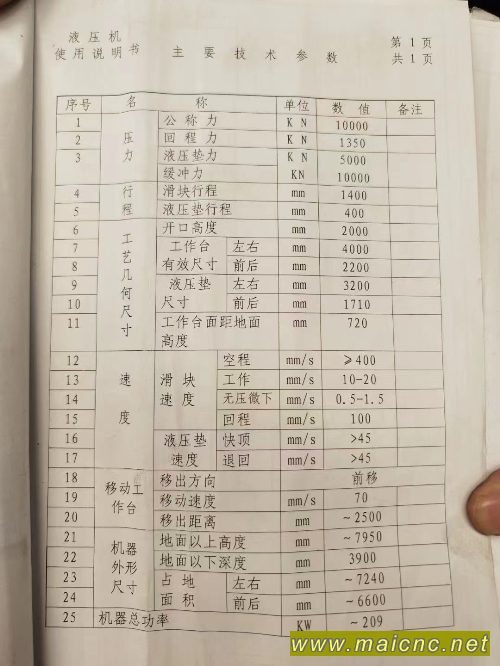 液压机
使用说明书 主要技术参数 第1页
共1页
序号 名称 单位 数值 备注
1 压力 公称力 KN 10000
2 回程力 KN 1350
3 液压垫力 KN 5000
缓冲力 KN 10000
4 行程 滑块行程 mm 1400
5 液压垫行程 mm 400
6 工艺几何尺寸 开口高度 mm 2000
7 工作台有效尺寸 左右 mm 4000
8 前后 mm 2200
9 液压垫尺寸 左右 mm 3200
10 前后 mm 1710
11 工作台面距地面高度 mm 720
12 速度 滑块速度 空程 mm/s ≥400
13 工作 mm/s 10-20
14 无压微下 mm/s 0.5-1.5
15 回程 mm/s 100
16 液压垫速度 快顶 mm/s >45
17 退回 mm/s >45
18 移动工作台 移出方向 前移
19 移动速度 mm/s 70
20 移出距离 mm ~2500
21 机器外形尺寸 地面以上高度 mm ~7950
22 地面以下深度 mm 3900
23 占地面积 左右 mm ~7240
24 前后 mm ~6600
25 机器总功率 KW ~209
www.maicnc.net